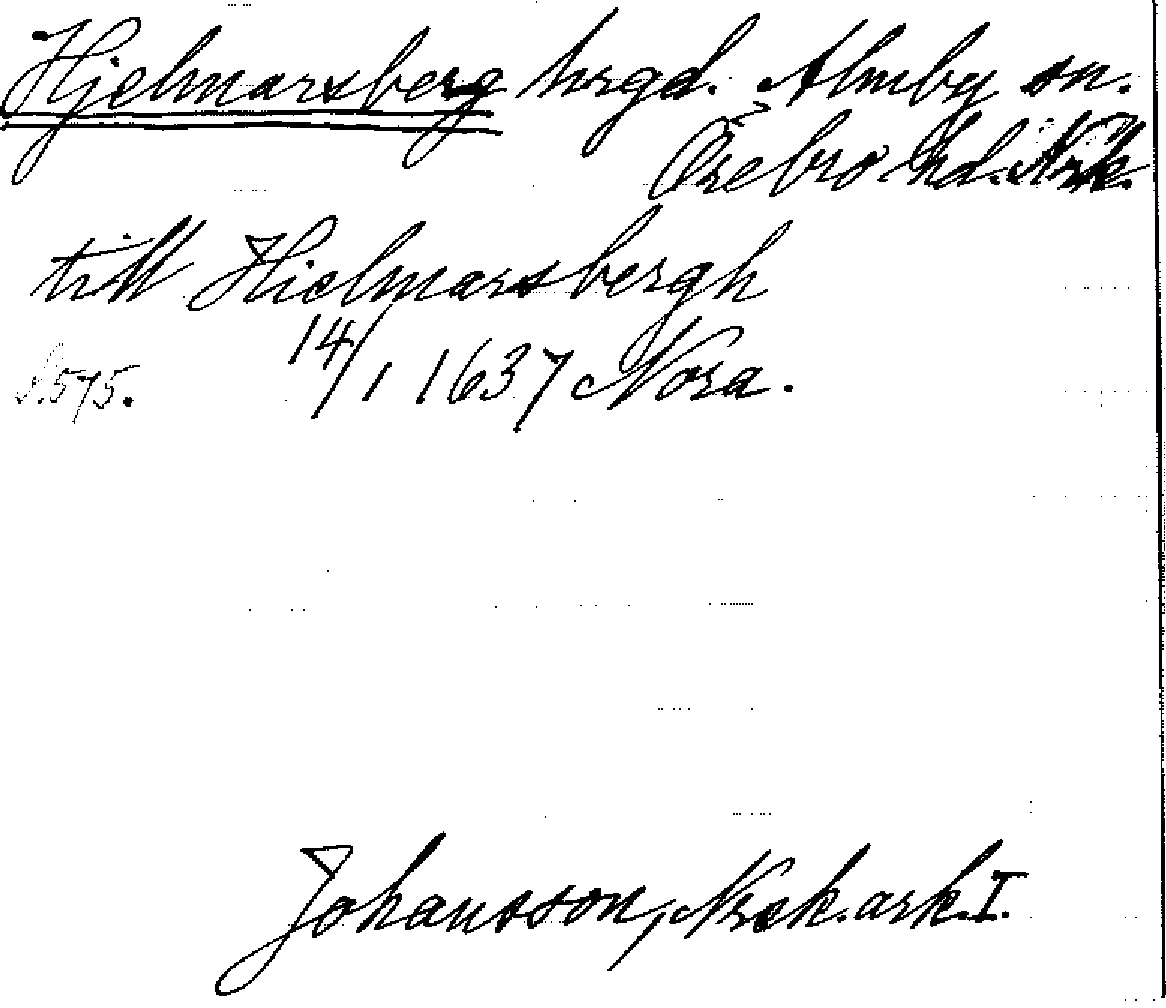 Hjelmarsberg hrgd. Almby sn.
Örebro hd. Nrk.
till Hielmarsbergh
14/1 1637 Nora.
S. 575.
Johansson, Norask. ark. I.